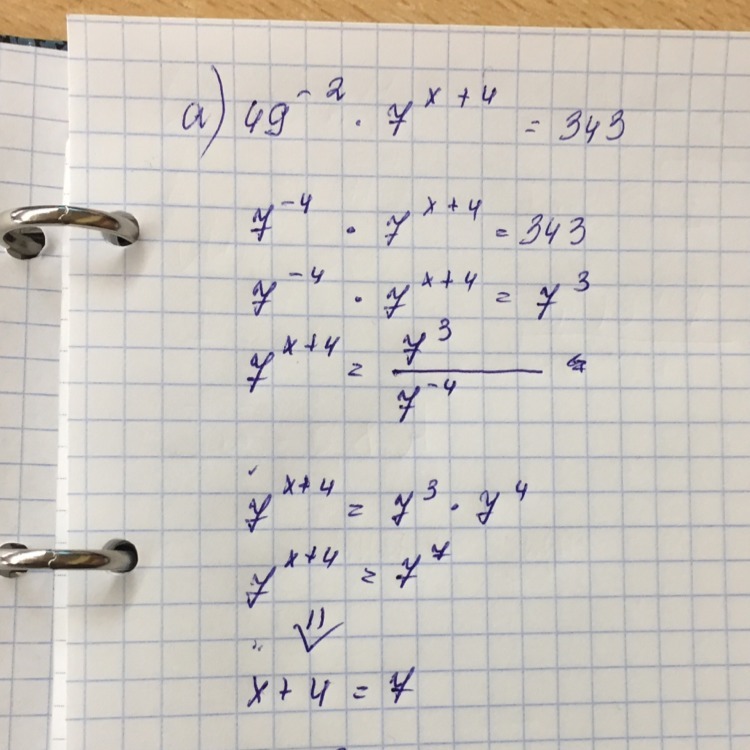 a) 49^{-2} · 7^{x+4} = 343
7^{-4} · 7^{x+4} = 343
7^{-4} · 7^{x+4} = 7^{3}
7^{x+4} = \frac{7^{3}}{7^{-4}}
7^{x+4} = 7^{3} · 7^{4}
7^{x+4} = 7^{7}
⇓
x + 4 = 7